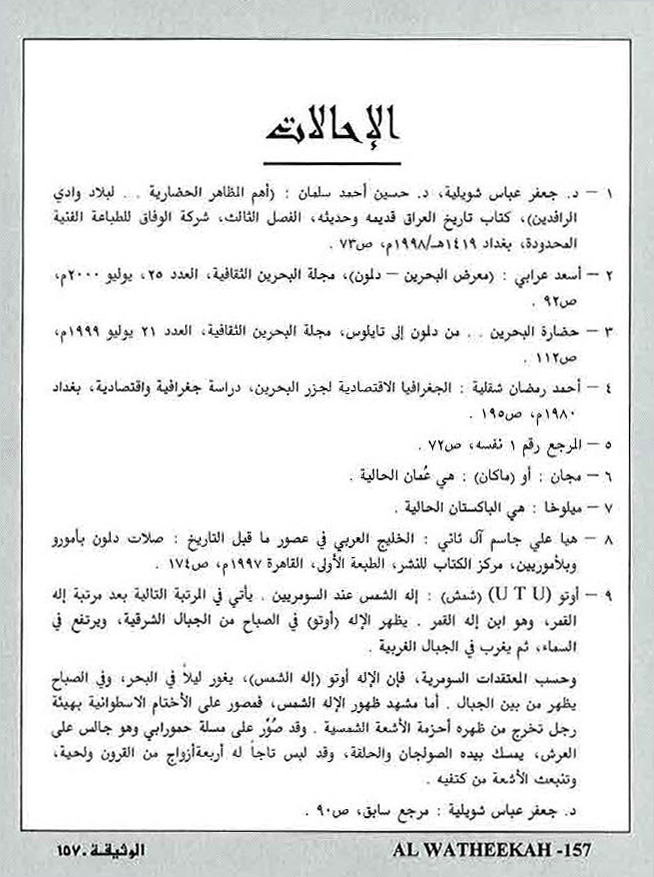 الإحالات
١ – د. جعفر عباس شويلية، د. حسين أحمد سلمان : (أهم المظاهر الحضارية . . لبلاد وادي
الرافدين)، كتاب تاريخ العراق قديمه وحديثه، الفصل الثالث، شركة الوفاق للطباعة الفنية
المحدودة، بغداد ١٤١٩هـ/١٩٩٨م، ص٧٣ .
٢ – أسعد عرابي : (معرض البحرين – دلمون)، مجلة البحرين الثقافية، العدد ٢٥، يوليو ٢٠٠٠م،
ص٩٢ .
٣ – حضارة البحرين . . من دلمون إلى تايلوس، مجلة البحرين الثقافية، العدد ٢١ يوليو ١٩٩٩م،
ص١١٢ .
٤ – أحمد رمضان شقلية : الجغرافيا الاقتصادية لجزر البحرين، دراسة جغرافية واقتصادية، بغداد
١٩٨٠م، ص١٩٥ .
٥ – المرجع رقم ١ نفسه، ص٧٢ .
٦ – مجان : أو (ماكان) : هي عُمان الحالية .
٧ – ميلوخا : هي الباكستان الحالية .
٨ – هيا علي جاسم آل ثاني : الخليج العربي في عصور ما قبل التاريخ : صلات دلون بأمورو
وبلأموريين، مركز الكتاب للنشر، الطبعة الأولى، القاهرة ١٩٩٧م، ص١٧٤ .
٩ – أوتو (U T U) (شمش) : إله الشمس عند السومريين . يأتي في المرتبة التالية بعد مرتبة إله
القمر، وهو ابن إله القمر . يظهر الإله (أوتو) في الصباح من الجبال الشرقية، ويرتفع في
السماء، ثم يغرب في الجبال الغربية .
وحسب المعتقدات السومرية، فإن الإله أوتو (إله الشمس)، يغور ليلاً في البحر، وفي الصباح
يظهر من بين الجبال . أما مشهد ظهور الإله الشمس، فمصور على الأختام الاسطوانية بهيئة
رجل تخرج من ظهره أحزمة الأشعة الشمسية . وقد صُوّر على مسلة حمورابي وهو جالس على
العرش، يمسك بيده الصولجان والحلقة، وقد لبس تاجاً له أربعةأزواج من القرون ولحية،
وتنبعث الأشعة من كتفيه .
د. جعفر عباس شويلية : مرجع سابق، ص٩٠ .
الوثيقـة . ١٥٧ AL WATHEEKAH -157